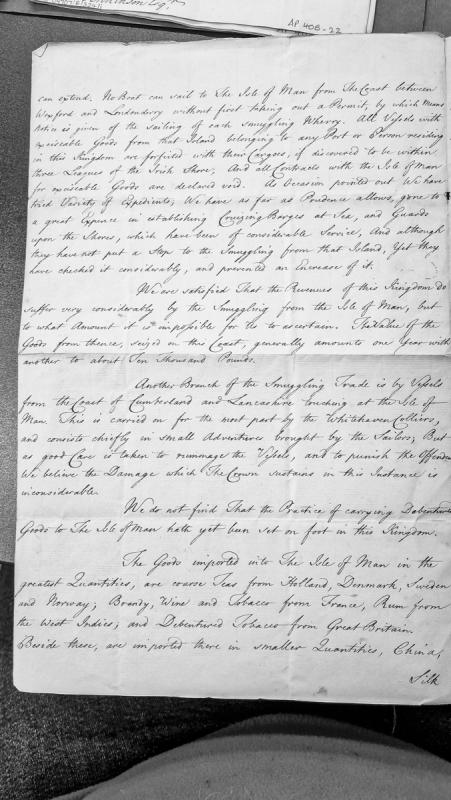 AP 40B-22
can extend. No Boat can sail to The Isle of Man from The Coast between
Wexford and Londonderry without first taking out a Permit, by which Means
Notice is given of the sailing of each smuggling Wherry. All Vessels with
exciseable Goods from that Island belonging to any Port or Person residing
in this Kingdom are forfeited with their Cargoes, if discovered to be within
three Leagues of the Irish Shore, And all Contracts with the Isle of Man
for exciseable Goods are declared void. As Occasion pointed out We have
tried Variety of Expedients, We have as far as Prudence allows, gone to
a great Expence in establishing Cruizing Barges at Sea, and Guards
upon the Shores, which have been of considerable Service, And although
they have not put a Stop to the Smuggling from that Island, Yet they
have checked it considerably, and prevented an Encrease of it.
We are satisfied That the Revenues of this Kingdom do
suffer very considerably by the Smuggling from the Isle of Man, but
to what Amount it is impossible for Us to ascertain. The Value of the
Goods from thence, seized on this Coast, generally amounts one Year with
another to about Ten Thousand Pounds.
Another Branch of the Smuggling Trade is by Vessels
from the Coast of Cumberland and Lancashire touching at the Isle of
Man. This is carried on for the most part by the Whitehaven Colliers,
and consists chiefly in small Adventures brought by the Sailors; But
as good Care is taken to rummage the Vessels, and to punish the Offenders
We believe the Damage which The Crown sustains in this Instance is
inconsiderable.
We do not find That the Practice of carrying Debentured
Goods to The Isle of Man hath yet been set on foot in this Kingdom.
The Goods imported into The Isle of Man in the
greatest Quantities, are coarse Teas from Holland, Denmark, Sweden
and Norway; Brandy, Wine and Tobacco from France, Rum from
the West Indies; and Debentured Tobacco from Great Britain.
Beside these, are imported there in smaller Quantities, China,
Silk